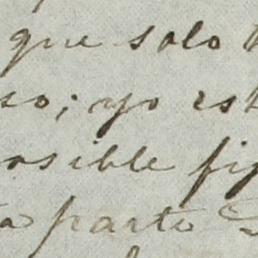 que solo
so; yo est
osible fi
a parte